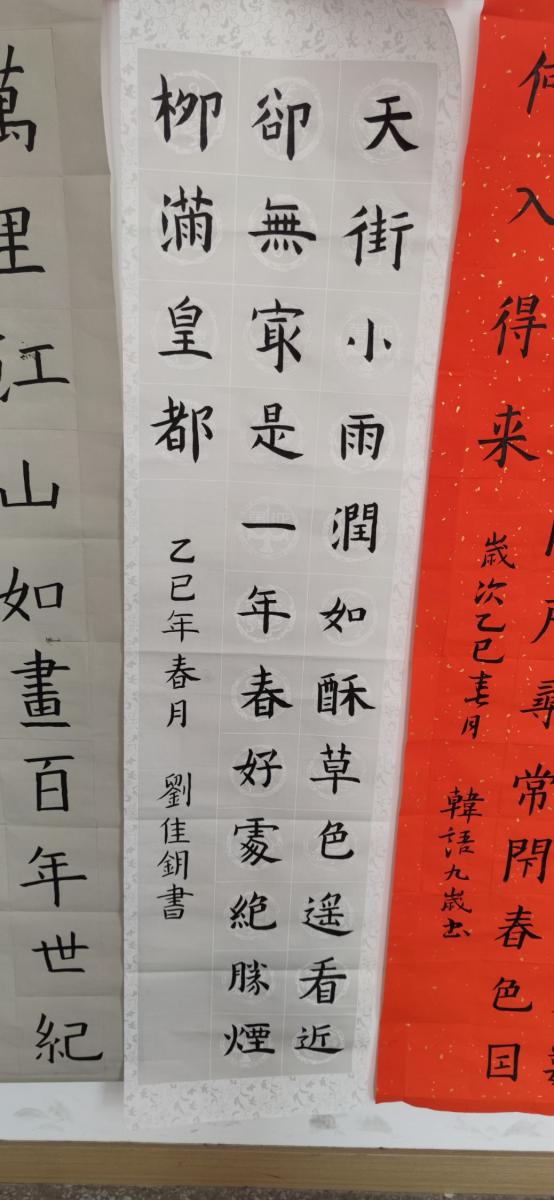 尋常閇春色囙
何入得来
歲次乙巳春月 韓語九歲书
天街小雨潤如酥草色遥看近
卻無冣是一年春好處絶勝煙
柳滿皇都
乙巳年春月 劉佳鈅書
萬里江山如畫百年世紀